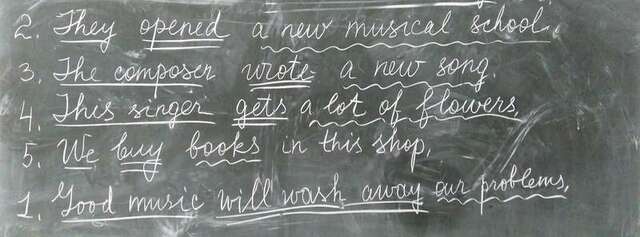 2. They opened a new musical school.
3. The composer wrote a new song.
4. This singer gets a lot of flowers.
5. We buy books in this shop.
1. Good music will wash away our problems.